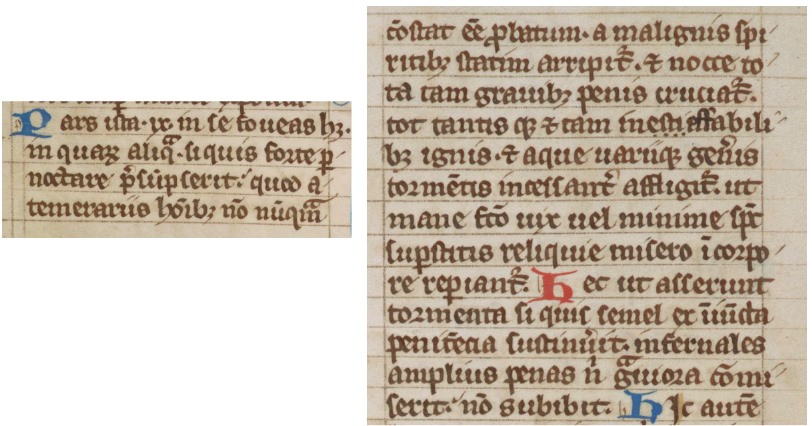 Pars ista ·ix· in se foueas hꝫ·
in quaꝝ aliq̃ · si quis forte ꝑ
noctare p̃sũpserit: quod a
temerariis hõibꝫ nõ nũqᷓm
cõstat eẽ ꝓbatum· a malignis spi
ritibꝫ statim arripit᷑· ⁊ nocte to
ta tam grauibꝫ penis cruciat᷑·
tot tantis qꝫ ⁊ tam inestiaffabili
bꝫ ignis· ⁊ aque uariiqꝫ geñis
tormẽtis incessant᷑ affligit᷑· ut
mane fc̃o uix uel minime sp̃c
suꝑstitis reliquie misero ĩ corpo
re reꝑiant᷑· Hec ut asserunt
tormenta si quis semel ex ĩiũcta
penitẽcia sustinũit· infernales
amplius penas ñ gᷓuiora cõmi
serit: nõ subibit· Hic autẽ